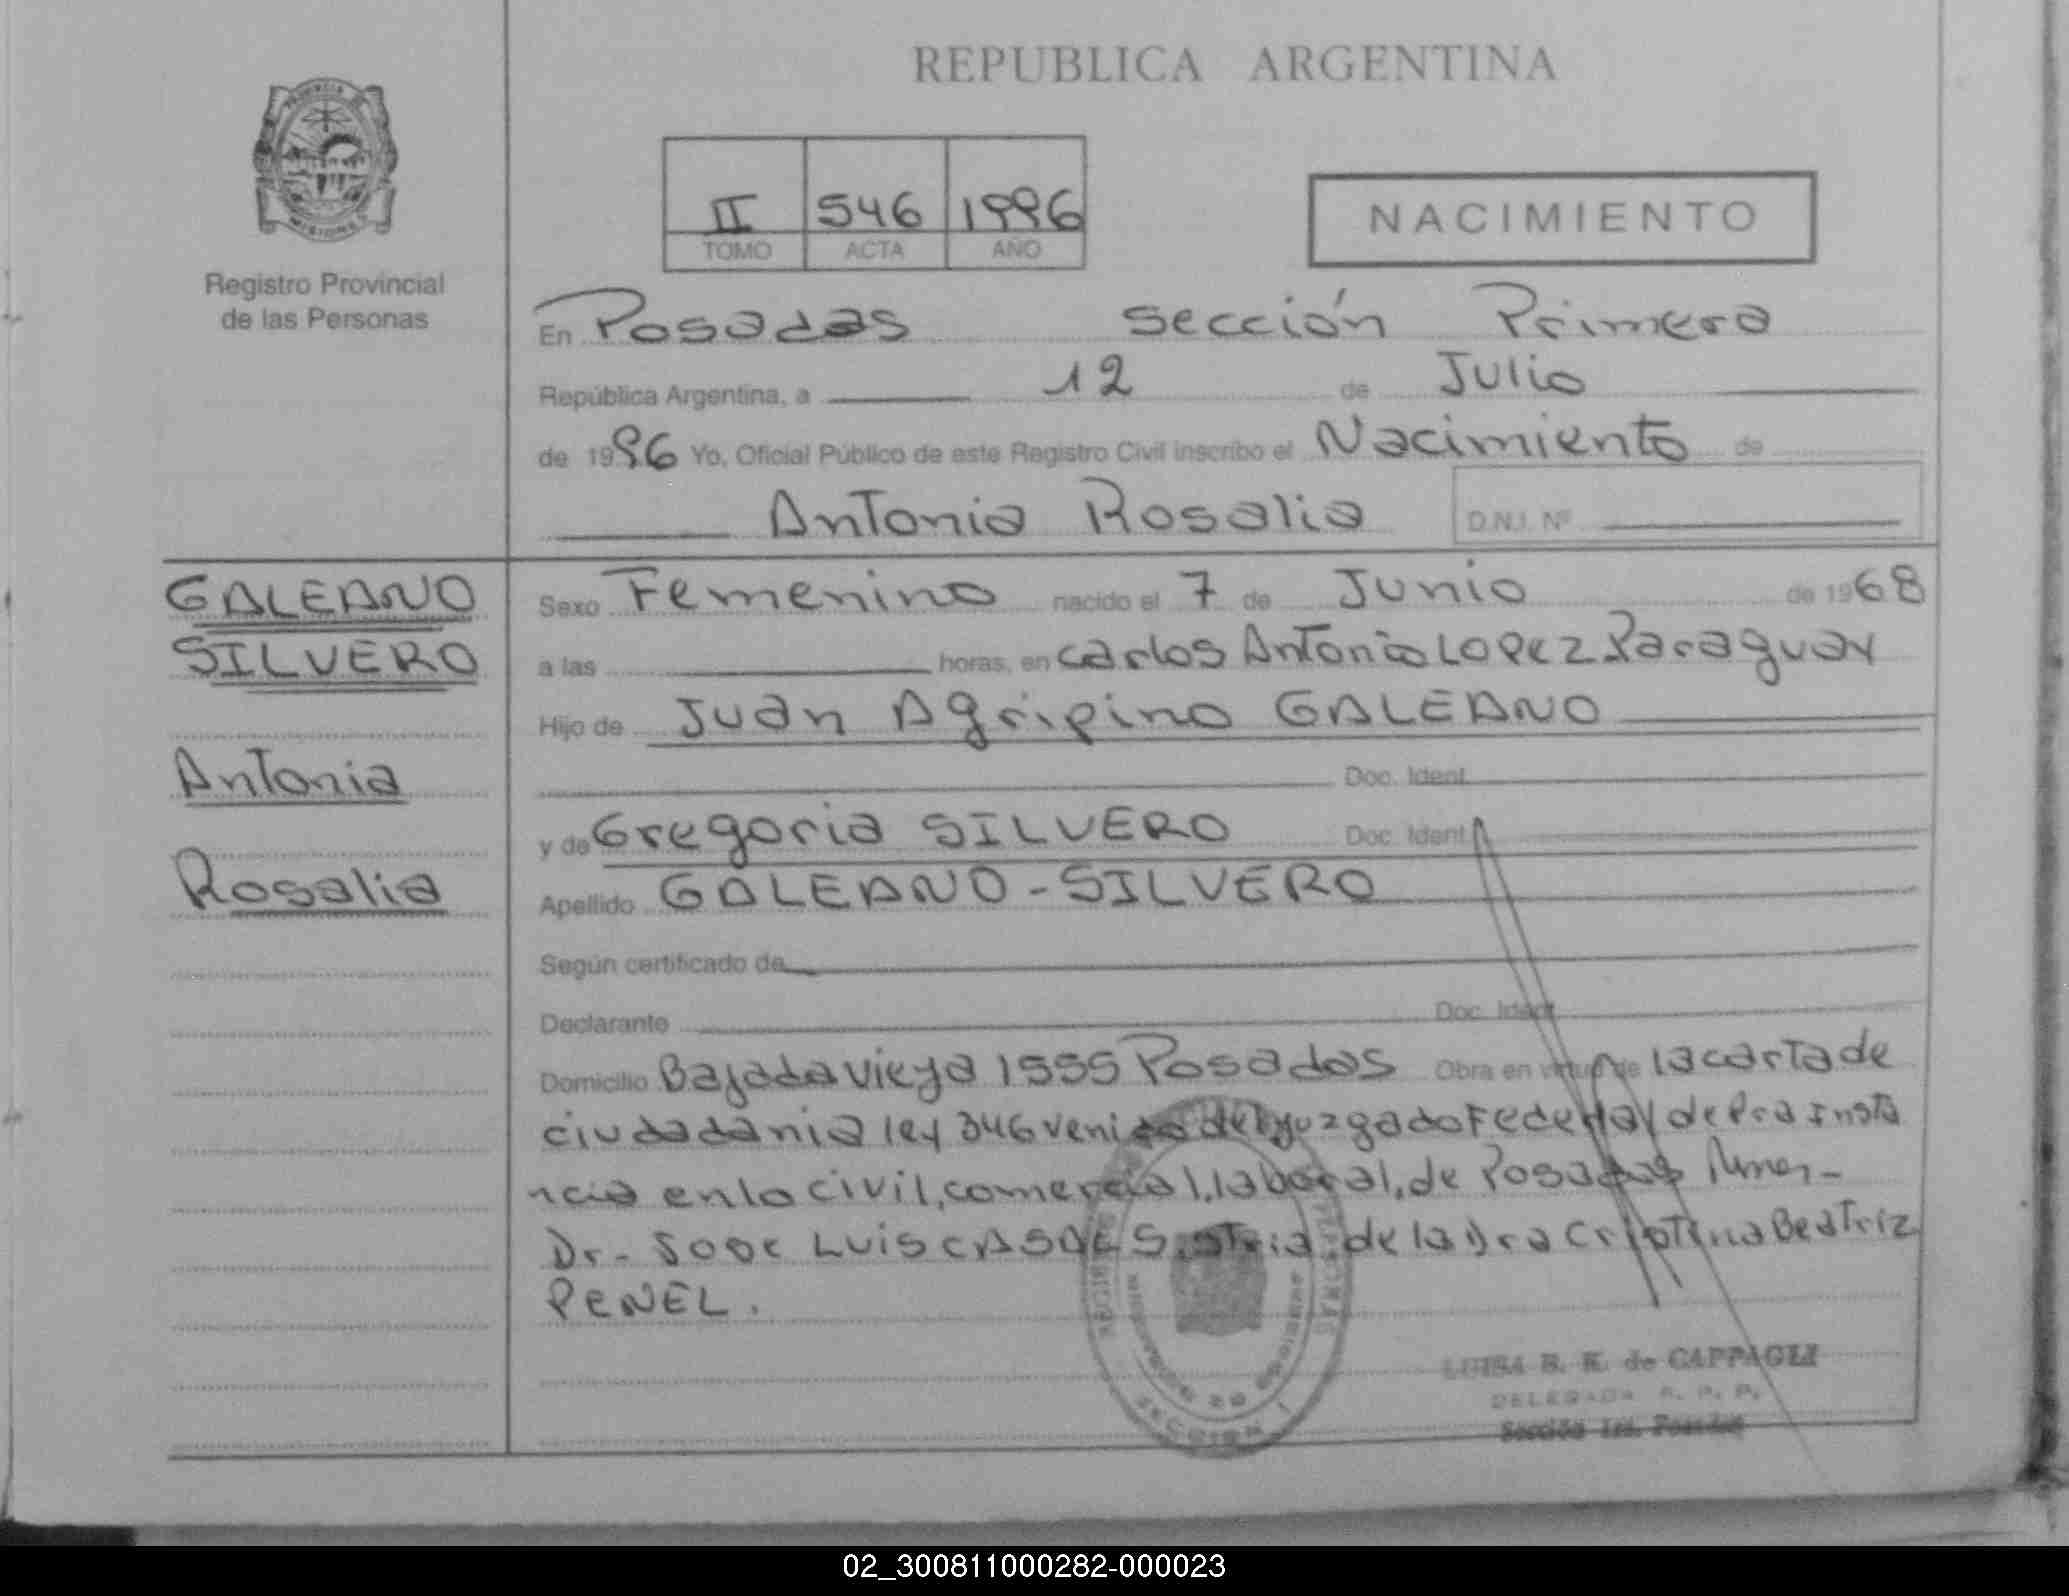 REPUBLICA ARGENTINA
PROVINCIA DE
MISIONES
Registro Provincial
de las Personas
II 546 1996
TOMO ACTA AÑO
NACIMIENTO
En Posadas sección Primera
República Argentina, a 12 de Julio
de 1996 Yo, Oficial Público de este Registro Civil inscribo el Nacimiento de
Antonia Rosalia D.N.I. Nº
GALEANO
SILVERO
Antonia
Rosalia
Sexo Femenino nacido el 7 de Junio de 1968
a las horas, en Carlos Antonio Lopez Paraguay
Hijo de Juan Agripino GALEANO
Doc. Ident.
y de Gregoria SILVERO Doc. Ident.
Apellido GALEANO - SILVERO
Según certificado de
Declarante Doc. Ident.
Domicilio Bajada vieja 1555 Posadas Obra en virtud de la carta de
ciudadania ley 346 venida del juzgado Federal de Pra Insta
ncia en lo civil, comercial, laboral, de Posadas
Dr - Jose Luis CASALS, stria de la Dra Cristina Beatriz
PENEL.
SECCION 1
LUISA B. K. de CAPPAGLI
DELEGADA R. P. P.
Sección 1ra. Posadas
02_300811000282-000023